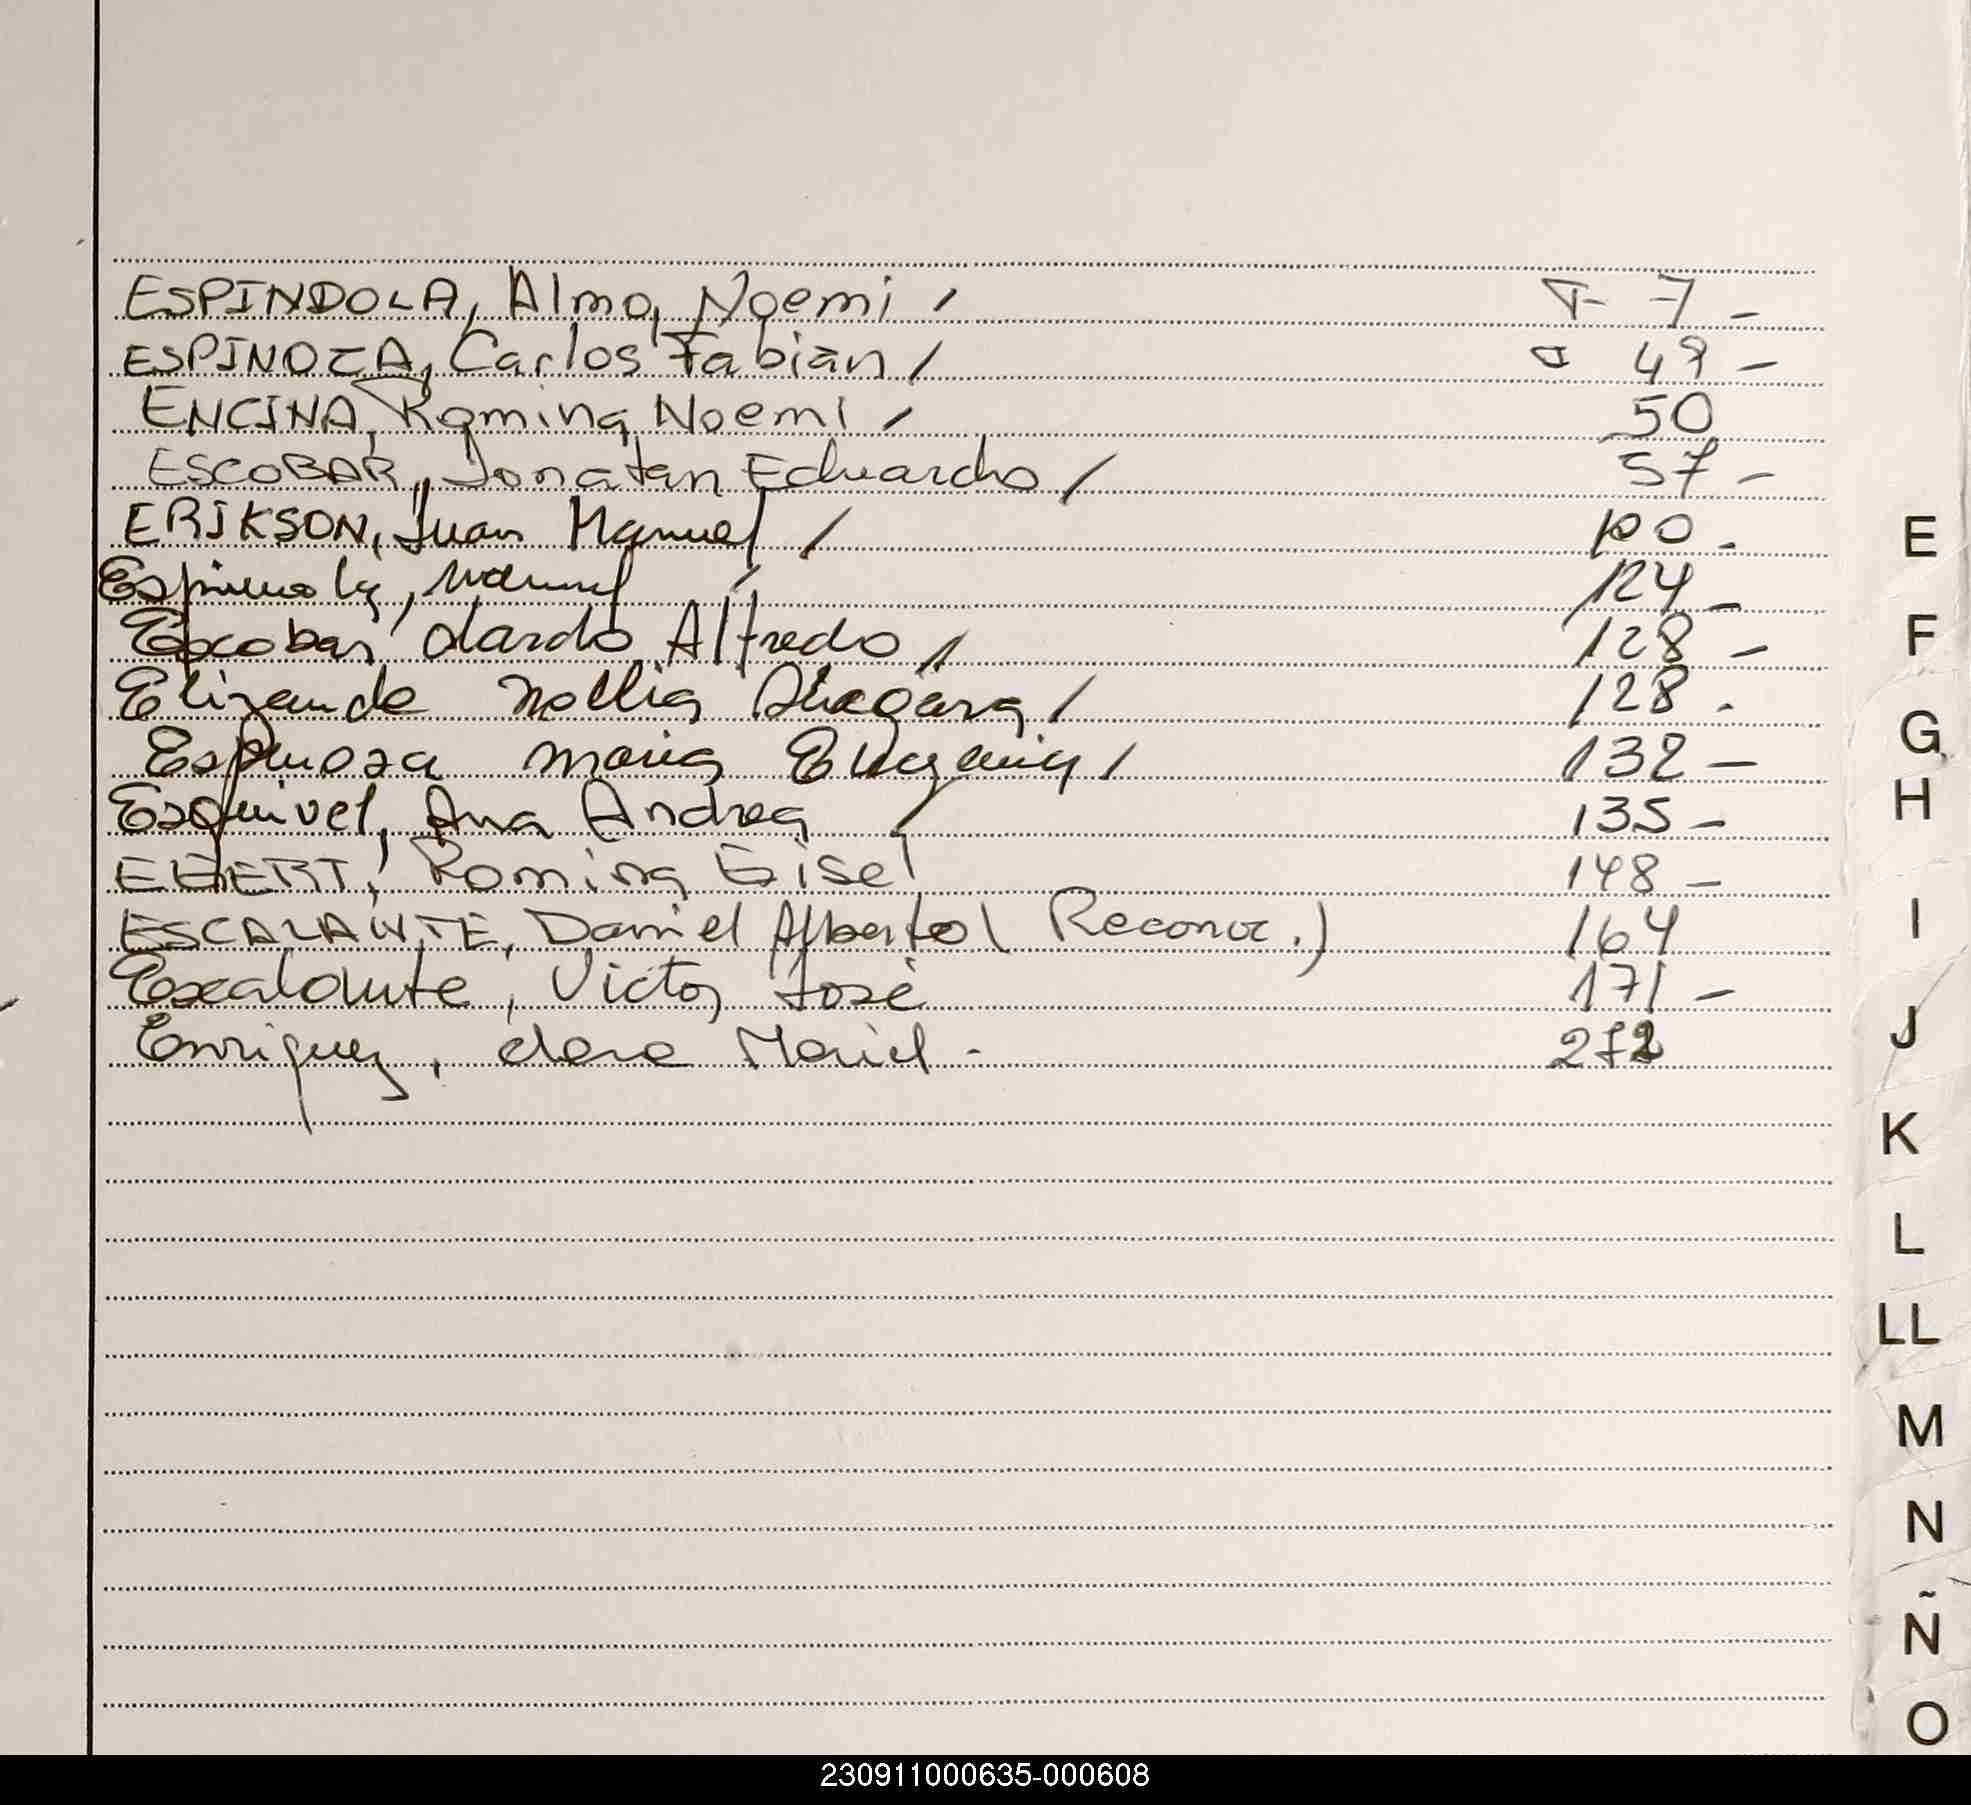 ESPINDOLA, Alma, Noemi / F- 7 -
ESPINOZA, Carlos Fabián / 49 -
ENCINA, Romina Noemi / 50
ESCOBAR, Jonatan Eduardo / 57 -
ERIKSON, Juan Manuel / 100 -
Espindola, Manuel / 124 -
Escobar, Lardo Alfredo / 128 -
Elizande / 128 -
Espinosa Maria Eugenia / 132 -
Esquivel, Ana Andrea / 135 -
EBERT, Romina Gisel 148 -
ESCALANTE, Daniel Alberto ( Reconoc. ) 164
Escalante, Victor José 171 -
Enriquez, Clara Mariel - 272
E
F
G
H
I
J
K
L
LL
M
N
Ñ
O
230911000635-000608